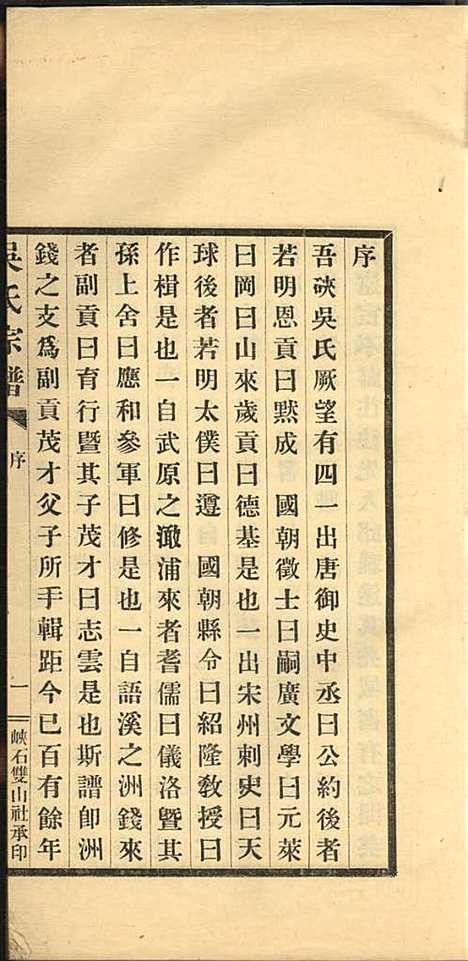 序
吾硤吳氏厥望有四一出唐御史中丞曰公約後者
若明恩貢曰默成　國朝徵士曰嗣廣文學曰元萊
曰岡曰山來歲貢曰德基是也一出宋州刺史曰天
球後者若明太僕曰遵　國朝縣令曰紹隆敎授曰
作楫是也一自武原之澉浦來者耆儒曰儀洛曁其
孫上舍曰應和參軍曰修是也一自語溪之洲錢來
者副貢曰育行曁其子茂才曰志雲是也斯譜卽洲
錢之支爲副貢茂才父子所手輯距今已百有餘年
吳氏宗譜
序
一
峽石雙山社承印